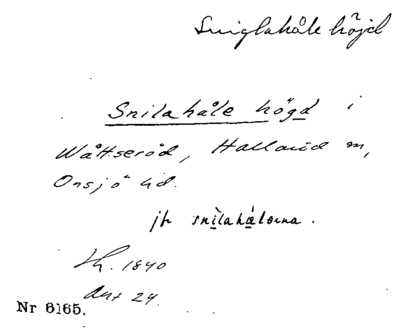 Sniglahåle höjd
Snilahåle högd i
Wåttseröd, Hallaröd sn,
Onsjö hd.
jfr snilahålorna.
Sk. 1840
Nr 6165.